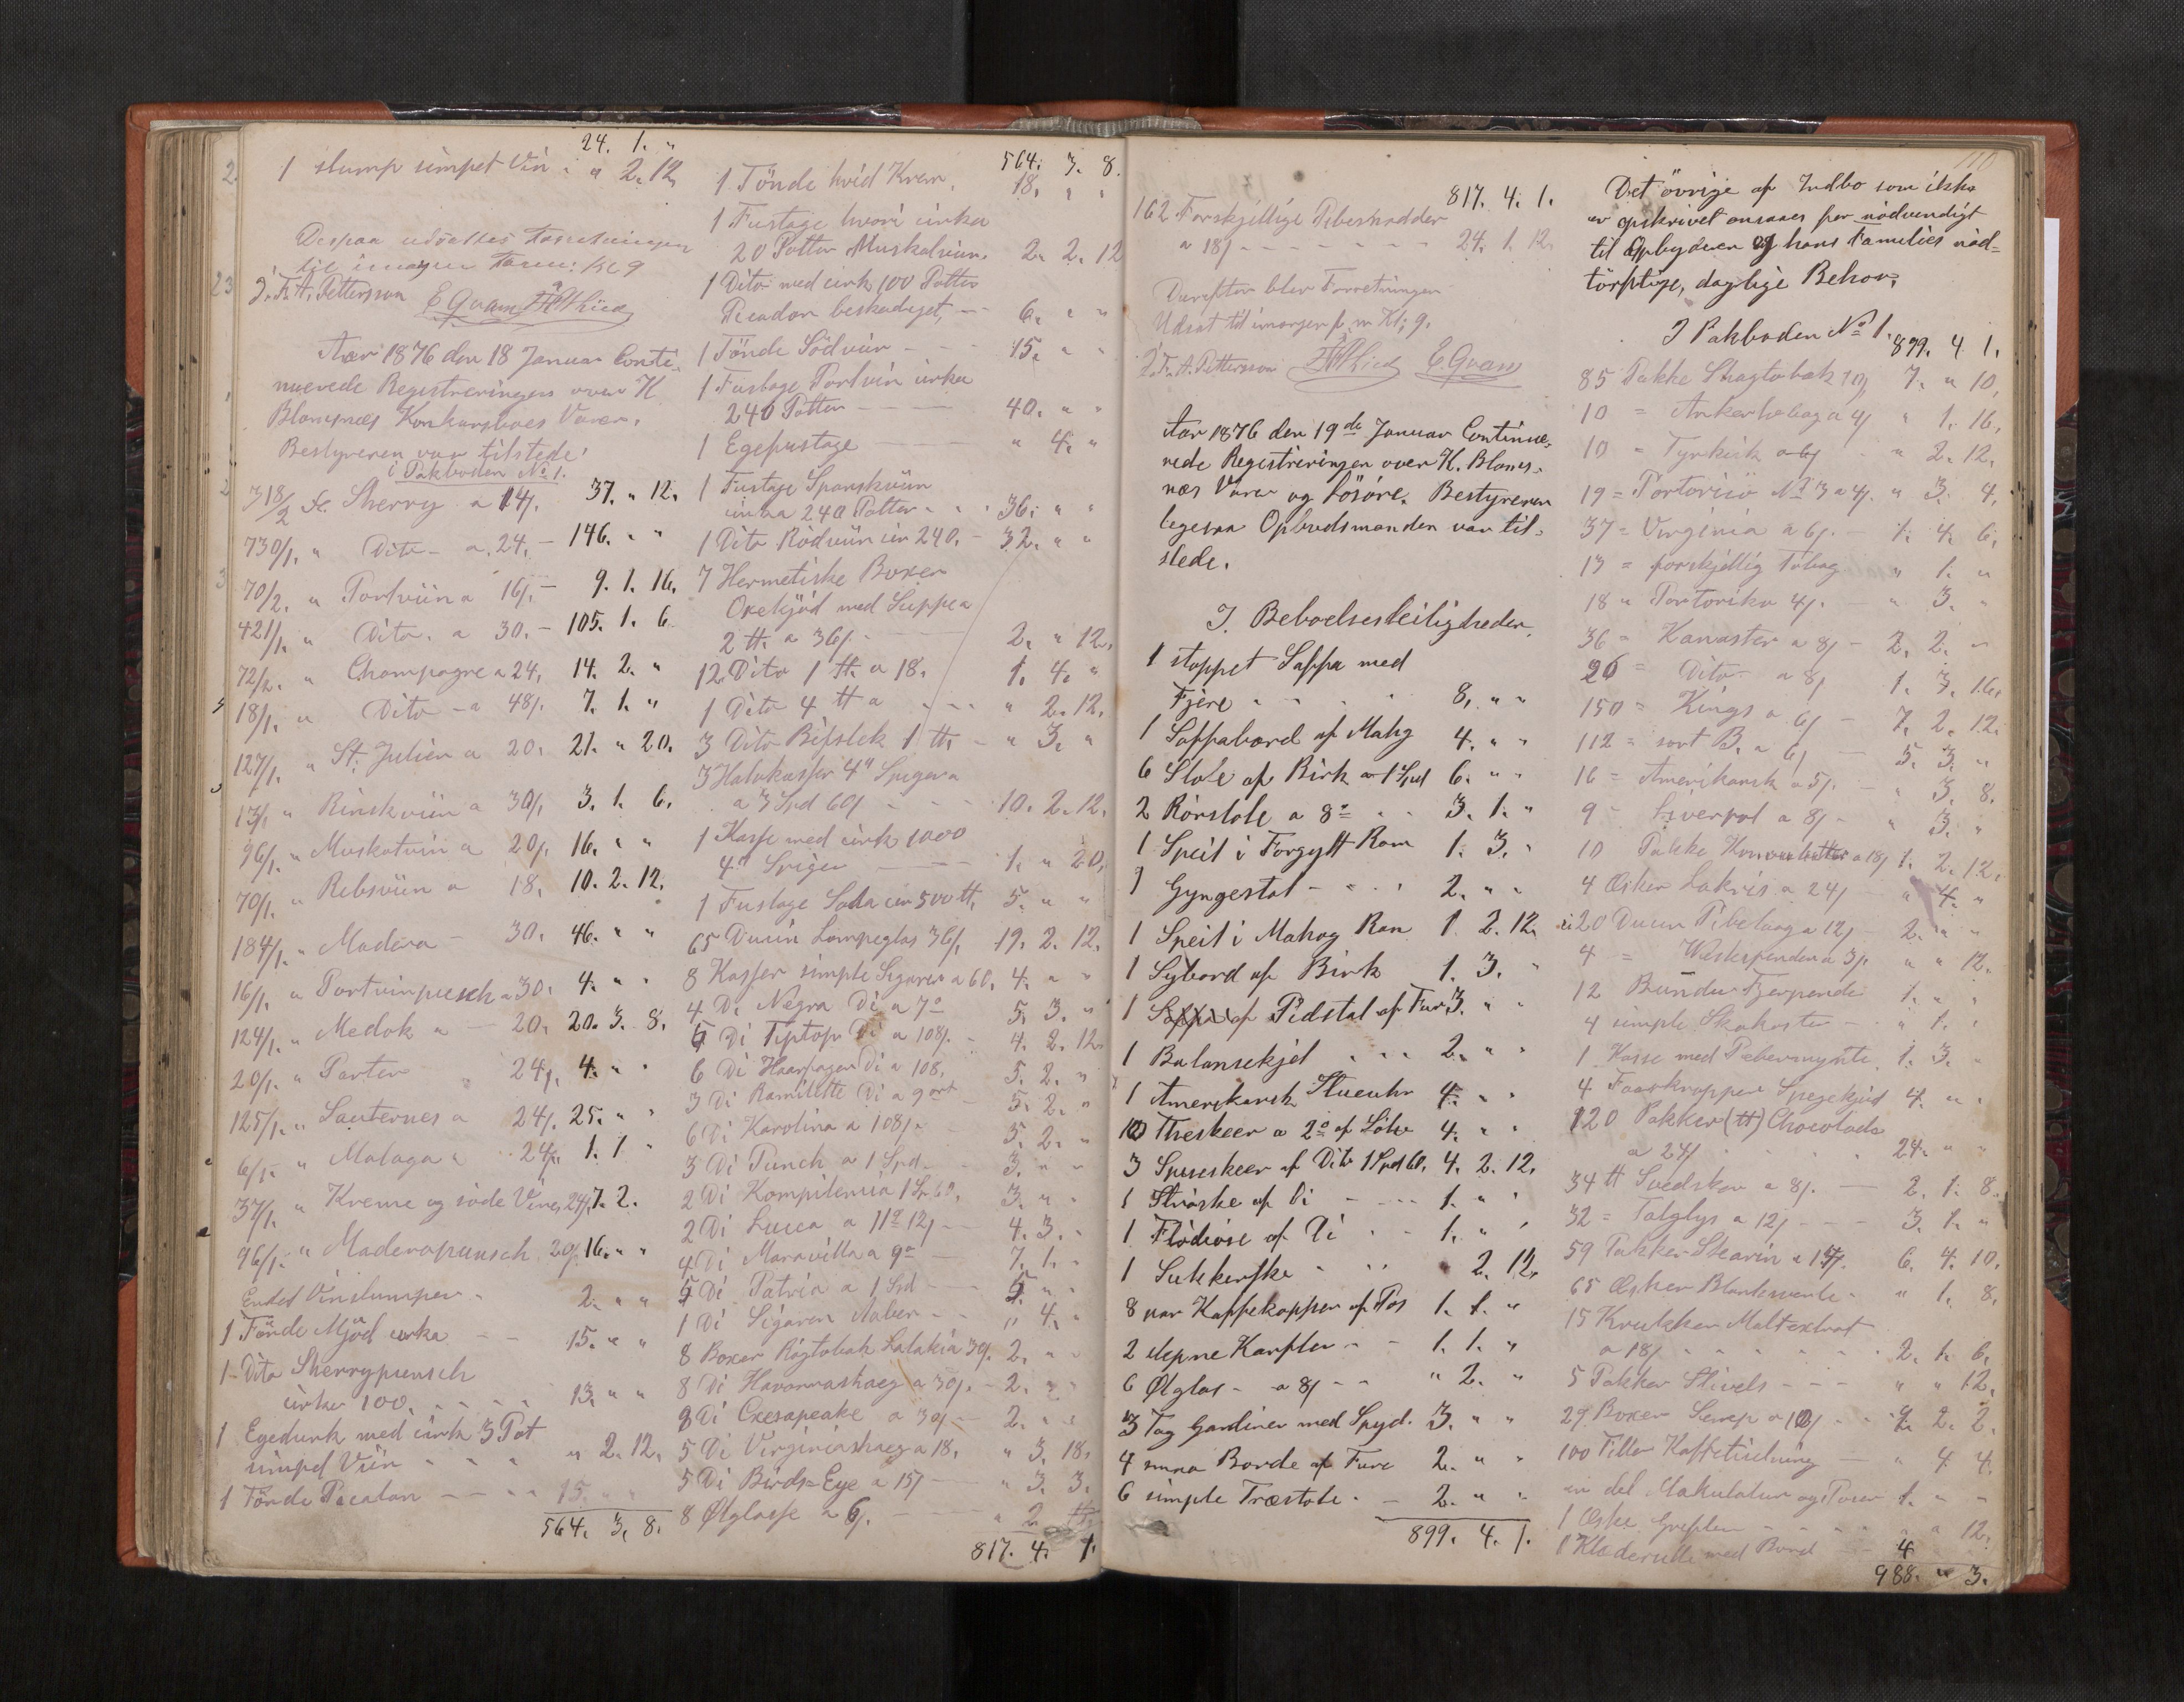 24. 1. "
1 slump simpet Vin " 2. 12.
Derpaa udsattes Forretningen
til imorgen Form: Kl 9
J. Fr. A. Pettersson E Qvam
Aar 1876 den 18 Januar Conti-
nuerede Registreringen over K.
Blomsnæs Konkursboes Varer.
Bestyreren var tilstede.
i Pakboden No 1.
318/2 fl. Sherry a 14/. 37. " 12.
730/1. " Dito - a. 24. - 146. " "
70/2. " Portviin a 16/. - 9. 1. 16.
421/1. " Dito. a 30. - 105. 1. 6.
72/2. " Champagne a 24. 14. 2. "
18/1. " Dito - a 48/. 7. 1. "
127/1. " St. Julien a 20. 21. " 20.
13/1. " Rinskviin a 30/. 3. 1. 6.
96/1. " Muskatvin a 20/. 16. " "
70/1. " Ribsviin a 18. 10. 2. 12.
184/1. " Madera - 30. 46. " "
16/1. " Portvinpunsch a 30. 4. " "
124/1. " Medok a 20. 20. 3. 8.
20/1. " Porter 24/. 4. " "
125/1. " Sauternes a 24/. 25. " "
6/1. " Malaga a 24/. 1. 1 "
37/1. " Kreme og söde Vine, 24/. 7. 2.
96/1. " Maderapunsch 20/. 16. " "
Endel Vinslumper - 2. " "
1 Tönde Mjöd cirka - - 15. " "
1 Dito Sherrypunsch
cirka 100. - - - 13. " "
1 Egedunk med cirk 3 Pot
simpel Viin - - - " 2. 12.
1 Tönde Picadon - - - 15. " "
564. 3. 8.
564. 3. 8.
1 Tönde hvid Krem. 18. " "
1 Fustage hvori cirka
20 Potter Muskatviin. 2. 2. 12
1 Dito med cirk 100 Potter
Picadon beskadiget, - 6. " "
1 Tönde Södviin - - - 15. " "
1 Fustage Portvin cirka
240 Potter - - - 40. " "
1 Egefustage " 4. "
1 Fustage Spanskviin
cirka 240 Potter - - 36. " "
1 Dito Rödviin cir 240. - 32. " "
7 Hermetiske Boxer
Oxekjöd med Suppe a
2 ℔. a 36/. - 2. " 12.
12 Dito 1 ℔. a 18. 1. 4. "
1 Dito 4 ℔ a - - - " 2. 12.
3 Dito Bifstek 1 ℔. - " 3. "
3 Halvkasser 4" Spiger a
a 3 Spd 60/ - - - 10. 2. 12.
1 Kasse med cirk 1000
4" Spiger - - 1. " 20.
1 Fustage Soda cir 500 ℔. 5. " "
65 Dusin Lampeglas 36/. 19. 2. 12.
8 Kasser simple Sigarer a 60. 4. " "
4 Di Negra Di a 7 o 5. 3. "
5 Di Tiptop Di a 108/. - 4. 2. 12.
6 Di Haarpagar Di a 108. 5. 2. "
3 Di Ramilette Di a 9 ort 5. 2. "
6 Di Karolina a 108/. 5. 2. "
3 Di Punch a 1 Spd. 3. " "
2 Di Kompitencia 1 Sp 60. 3. " "
2 Di Lucca a 11 o 12/ - 4. 3. "
4 Di Maravilla a 9 o - 7. 1. "
5 Di Patria a 1 Spd - 5. " "
1 Di Sigaren Aaben - " 4. "
8 Boxer Rögtobak Latakia 30/. 2. " "
8 Di Havannashaeg a 30/. - 2. " "
8 Di Cxesapeake a 30/ - 2. " "
5 Di Virginiashaeg a 18. " 3. 18.
5 Di Birds-Eye a 15/ - " 3. 3.
8 Ølglasse a 6/. - " 2
817. 4. 1.
817. 4. 1.
162 Forskjellige Pibeshodder
a 18/ - - - - - 24. 1. 12.
Derefter blev Forretningen
Udsat til imorgen f. m Kl; 9.
J. Fr. A. Pettersson E. Qvam
Aar 1876 den 19de Januar Continue-
rede Registreringen over K. Bloms-
næs Varer og Lösöre. Bestyreren
legesaa Opbudsmanden var til-
stede.
I Beboelsesleiligheden.
1 stoppet Saffa med
Fjere - - - 8. " "
1 Saffabord af Mahg 4. " "
6 Stole af Birk a 1 Spd 6. " "
2 Rörstole a 8 o - - 3. 1. "
1 Speil i Forgyldt Ram 1. 3. "
1 Gyngestol - - - 2. " "
1 Speil i Mahog Ram 1. 2. 12.
1 Sybord af Birk 1. 3. "
1 Pidstal af Fur 3. " "
1 Balansekjel - - - 2. " "
1 Amerikansk Stueuhr 4. " "
10 Theskeer a 2 o af Sölv 4. " "
3 Spiseskeer af Dito 1 Spd 60. 4. 2. 12.
1 Ströske af Di - - - 1. " "
1 Flödeöse af Di - - 1. " "
1 Sukkerske - - - " 2. 12.
8 par Kaffekopper af Pos 1. 1. "
2 Lepne Karfler - - 1. 1. "
6 Ølglas - a 8/ - - " 2. "
3 Fag Gardiner med Spyd. 3. " "
4 smaa Borde af Fure 2. " "
6 simple Træstole - - 2. " "
899. 4. 1.
110
Det övrige af Indbo som ikke
er opskrivet ansaaes for nödvendigt
til Opbyderen og hans Families nöd-
törftige, daglige Behov.
I Pakboden No 1.
899. 4 1.
85 Pakke Shagtobak 10/ 7. " 10.
10 = Ankertobag a 4/ " 1. 16.
10 = Tyrkisk a 6/ " 2. 12.
19 = Portorico No 3 a 4/. " 3. 4.
37 = Virginia a 6/. - 1. 4. 6.
13 = forskjellig Tobag " 1. "
18 " Portoriko 4/. " 3. "
36 = Kanaster a 8/ - 2. 2. "
26 = Dito - a 8/ 1. 3. 16.
150 = Kings a 6/ - 7. 2. 12.
112 = sort B. a 6/ - 5. 3. "
16 = Amerikansk a 5/. - " 3. 8.
9 = Liverpol a 8/ - " 3. "
10 Pakke Konvulutter a 18/ 1. 2. 12.
4 Æsker Lakris a 24/ " 4. "
20 Dusin Pibelaag a 12/ - 2. " "
4 = Viskepender a 3/. " " 12.
12 Bundter Fjerpende 1. " "
4 simple Skokoste - " 1. "
1 Kasse med Pæbermynte 1. 3. "
4 Faarekropper Spegekjöd 4. " "
120 Pakker (℔) Chocolade
a 24/ 24. " "
34 ℔ Svedsker a 8/. - 2. 1. 8.
32 = Talglys a 12/ - - - 3. 1. "
59 Pakker Stearin a 14/. 6. 4. 10.
65 Æsker Blanksværte - " 1. 8.
15 Krukker Maltextrat
a 18/ - - - - 2. 1. 6.
5 Pakker Stivels - - - " " 12.
29 Boxer Senep a 10/ - - 2. 2.
100 Filler Kaffetiselning - " 4. 4.
en del Makulatur og Poser 1. " "
1 Æske Grefler - - - " " 12.
1 Klæderulle med Bord - - 4
988. " 3.